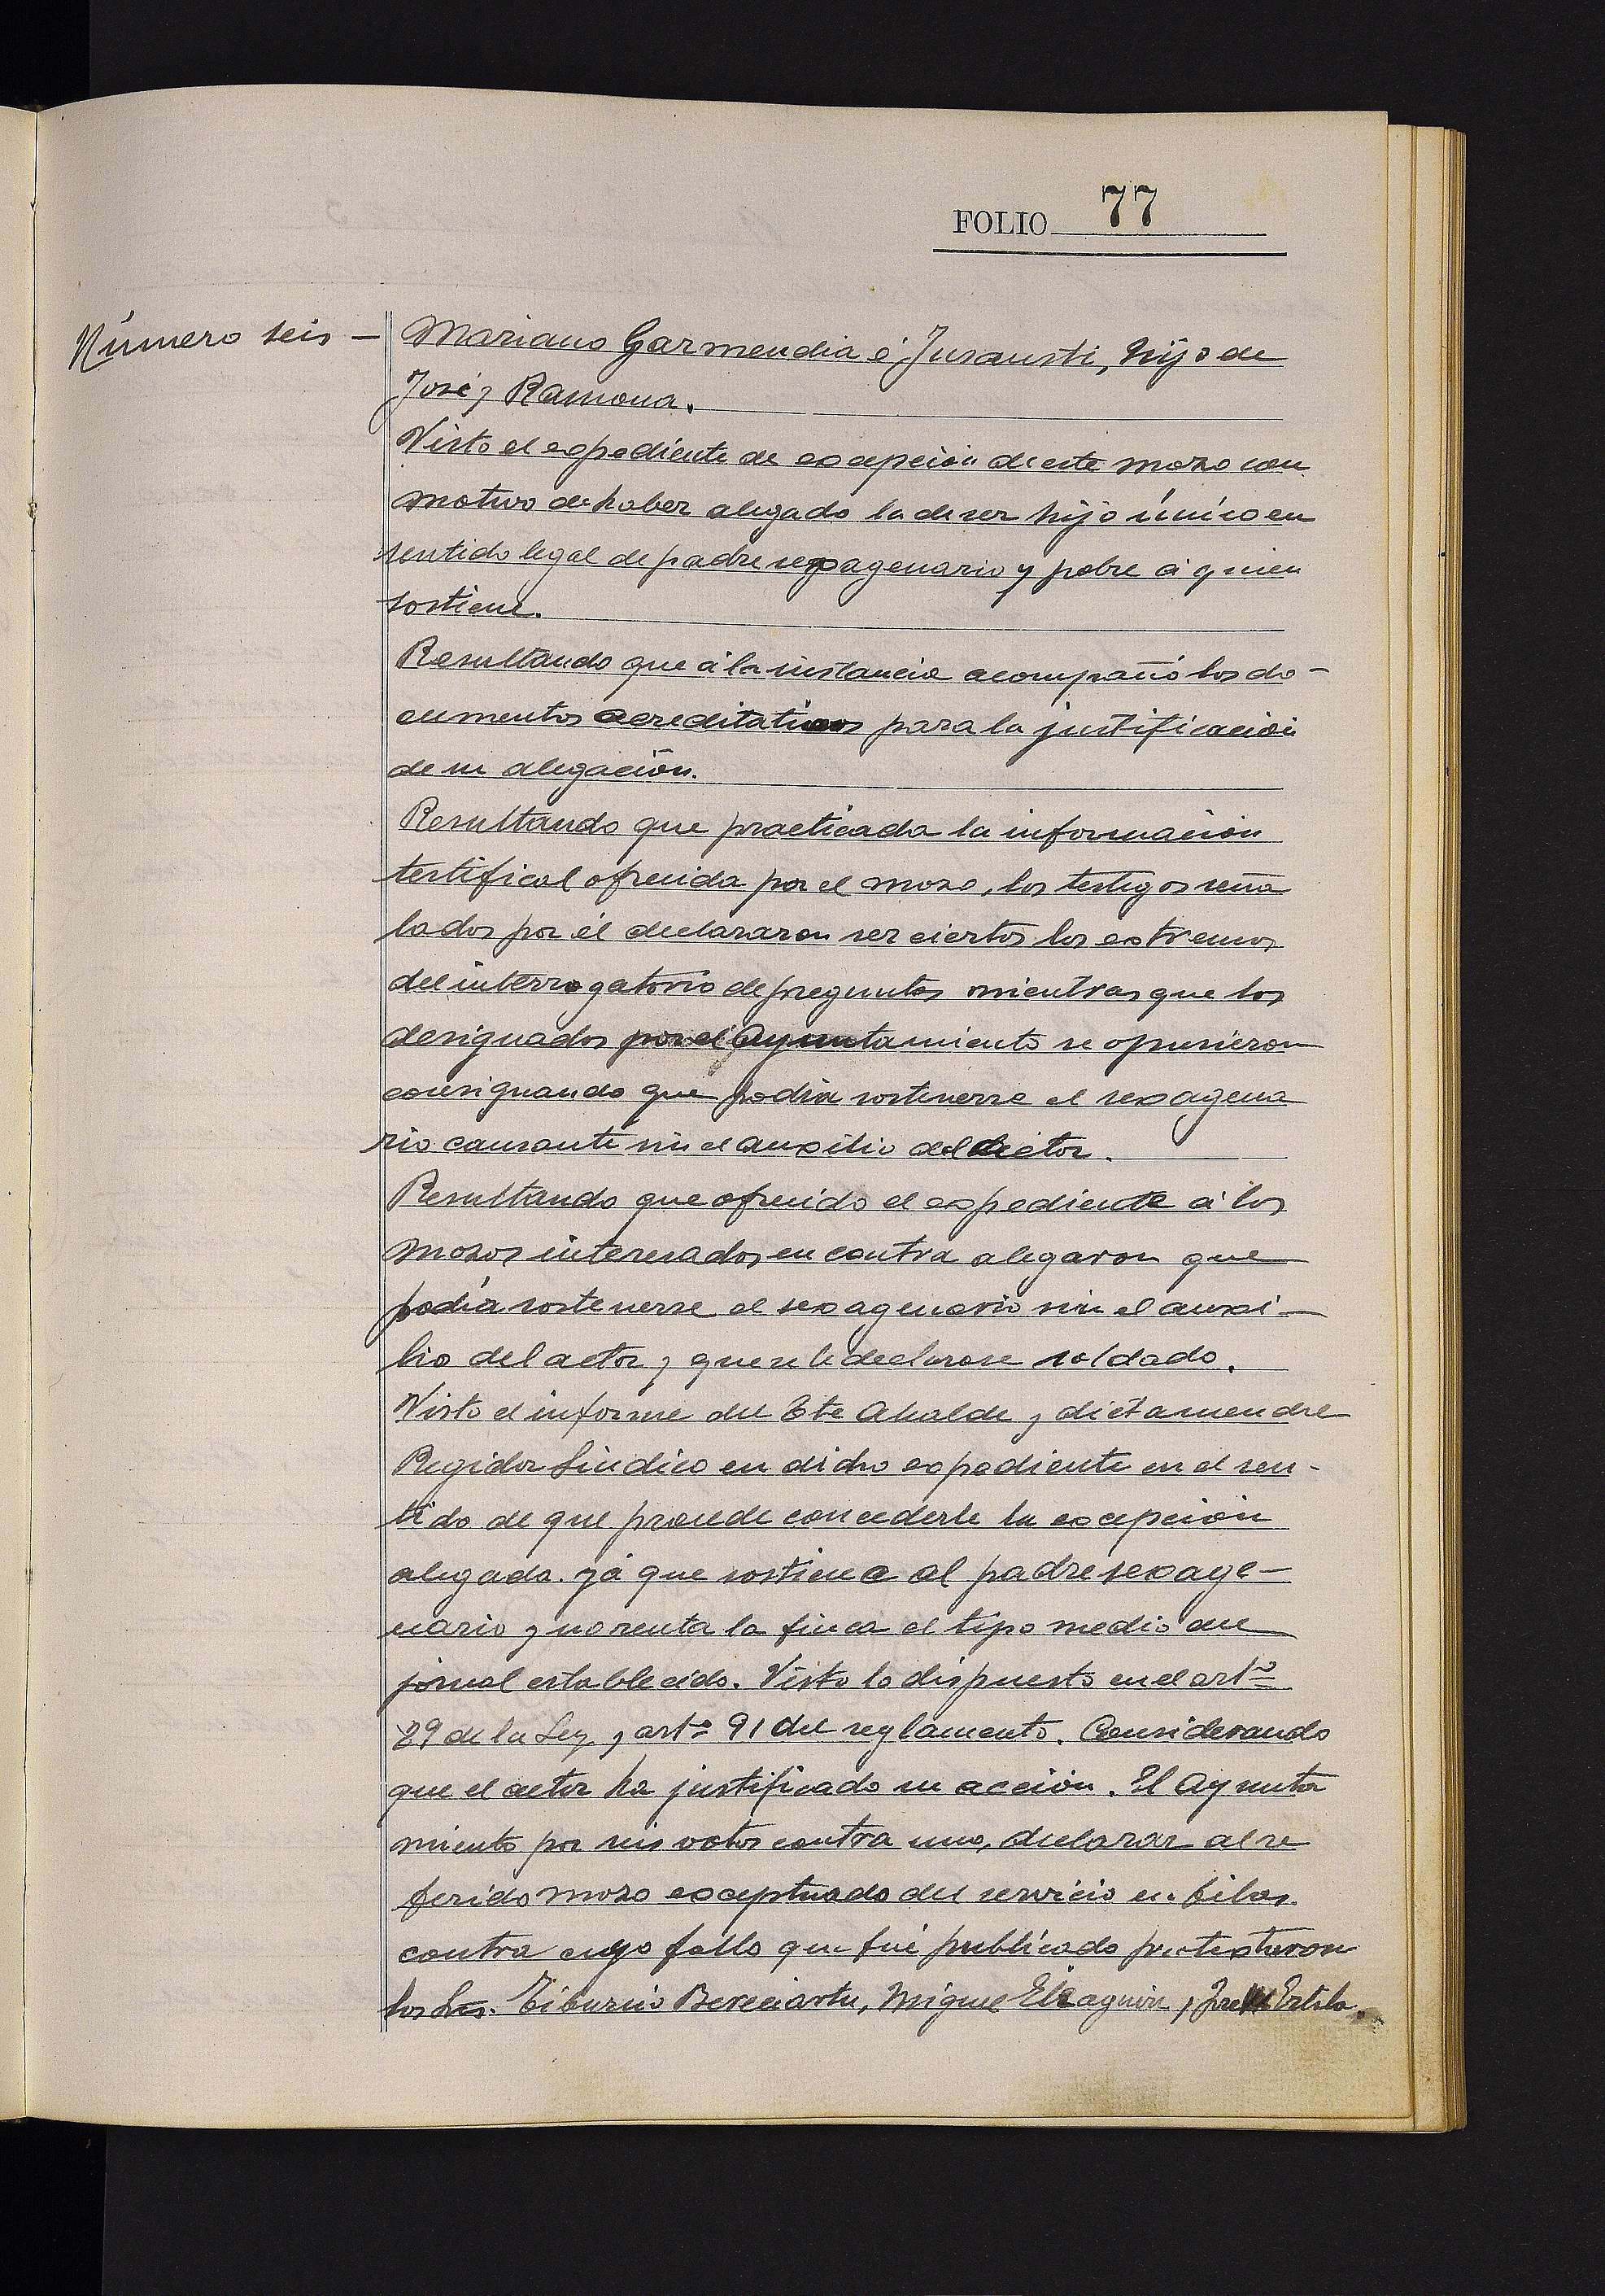 FOLIO 77
Número seis —
Mariano Garmendia é Insausti, hijo de
José y Ramona.
Visto el expediente de excepción de este mozo con
motivo de haber alegado la de ser hijo único en
sentido legal de padre sexagenario y pobre á quien
sostiene.
Resultando que á la instancia acompañó los do-
cumentos acreditativos para la justificación
de su alegación.
Resultando que practicada la información
testifical ofrecida por el mozo, los testigos seña
lados por él declararon ser ciertos los extremos
del interrogatorio de preguntas mientras que los
designados por el Ayuntamiento se opusieron
consignando que podia sostenerse el sexagena
rio causante sin el auxilio del actor.
Resultando que ofrecido el expediente á los
mozos interesados en contra alegaron que
podía sostenerse el sexagenario sin el auxi-
lio del actor y que se le declarase soldado.
Visto el informe del Tte Alcalde y dictamen del
Regidor Síndico en dicho expediente en el sen-
tido de que procede concederle la excepción
alegada. yá que sostiene al padre sexage-
nario y no renta la finca el tipo medio del
jornal establecido. Visto lo dispuesto en el artº
89 de la Ley y artº 91 del reglamento. Considerando
que el actor ha justificado su acción. El Ayunta
miento por seis votos contra uno, declarar al re
ferido mozo exceptuado del servicio en filas
contra cuyo fallo que fué publicado protestaron
los Srs. Tiburcio Bereciartu, Miguel